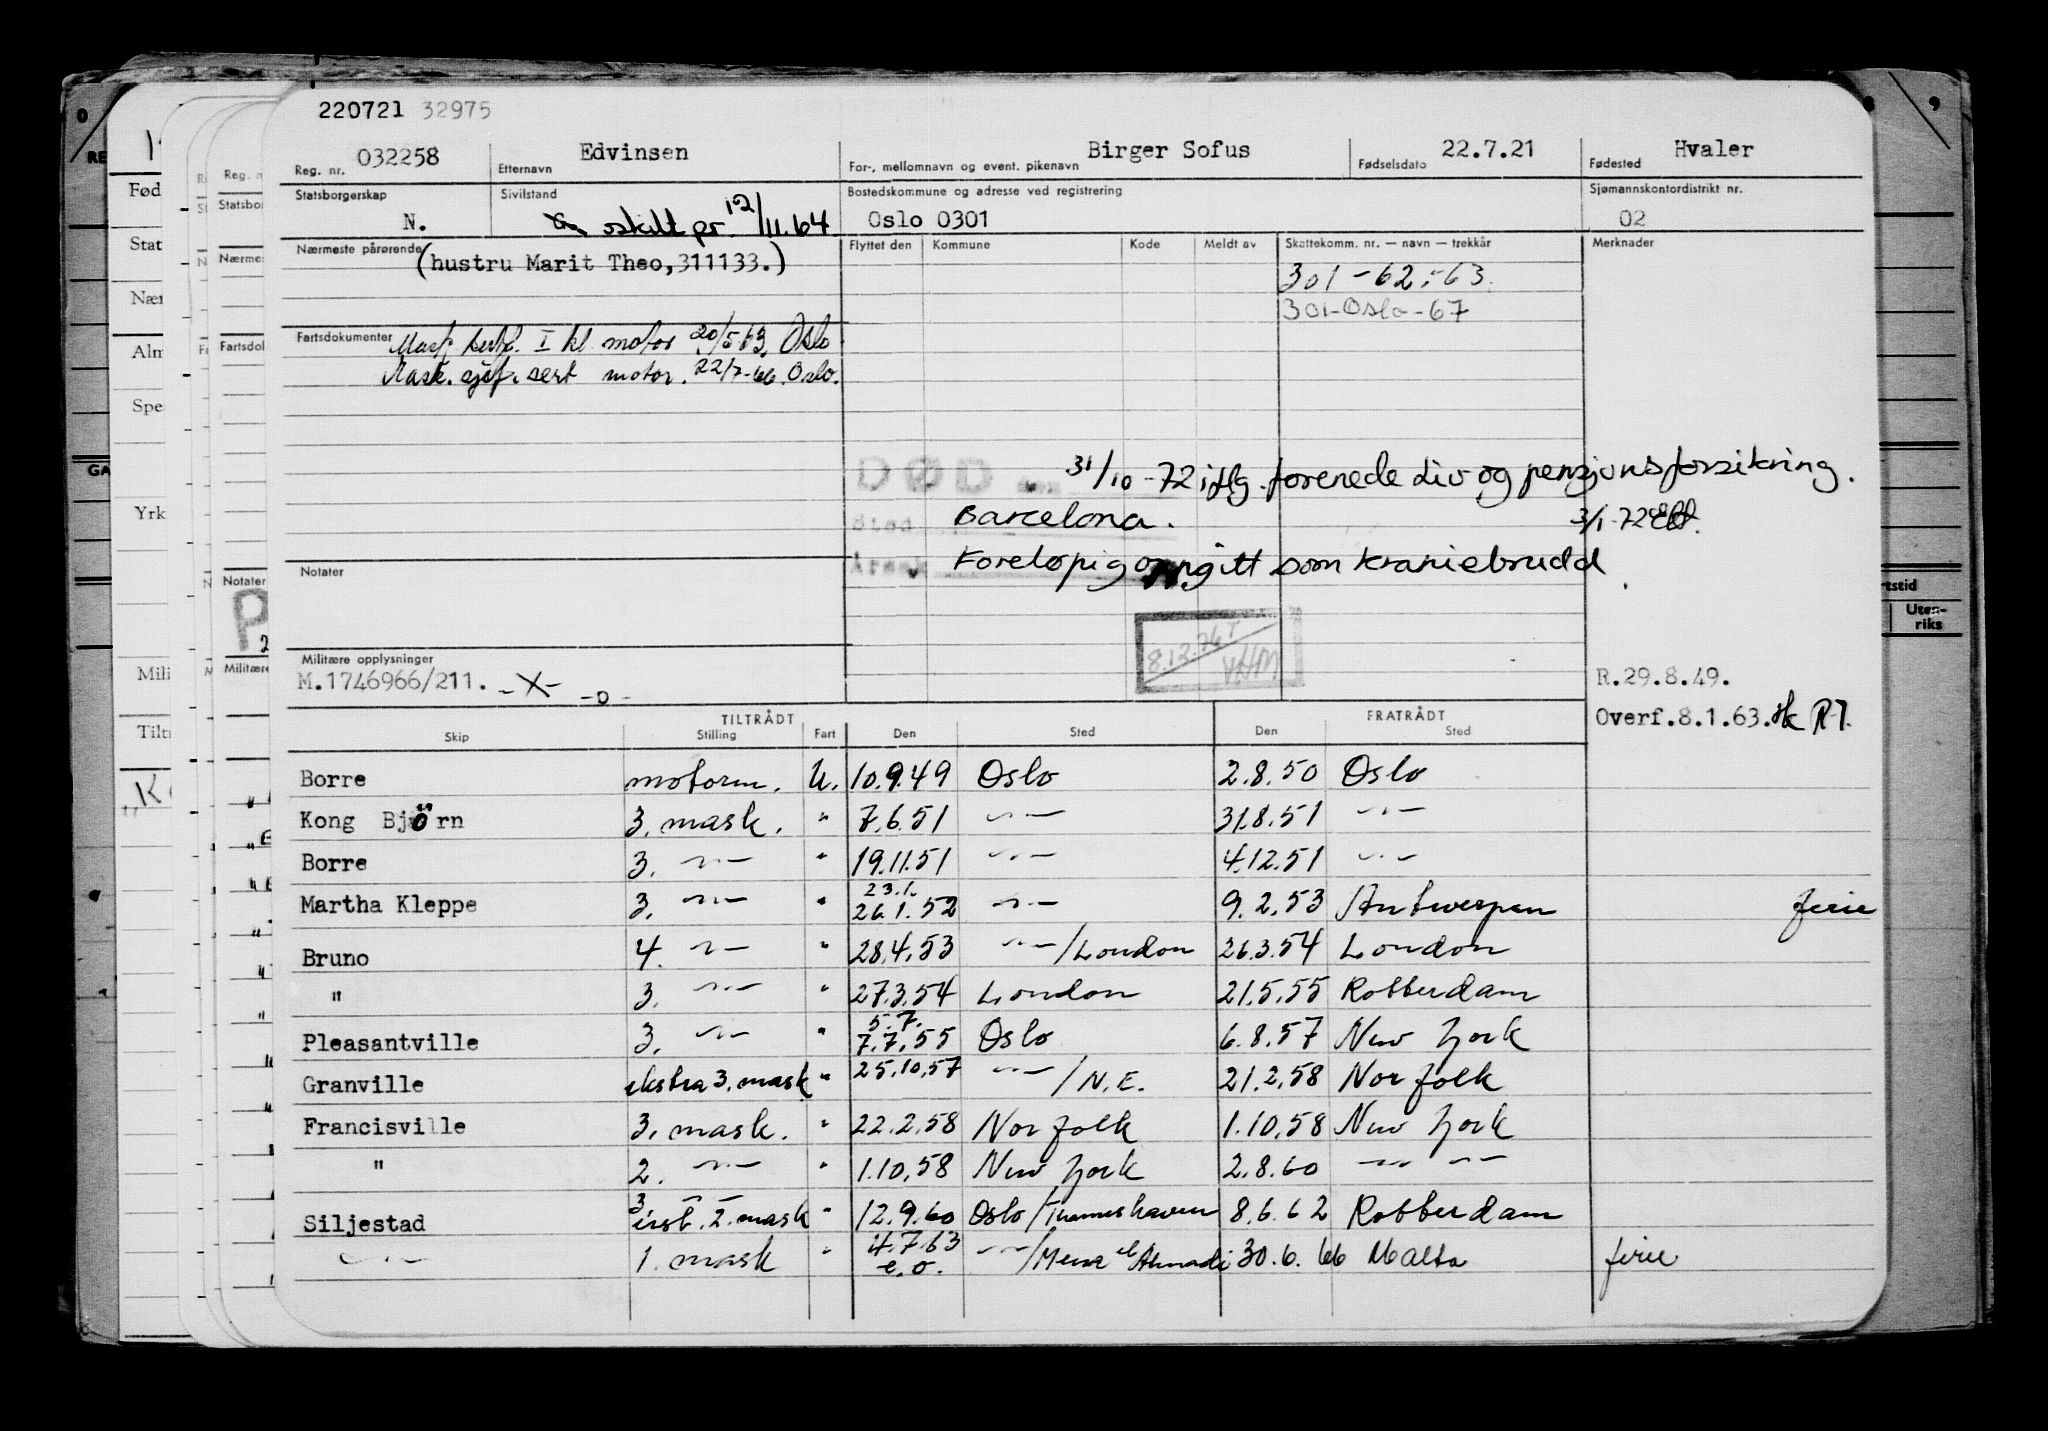 220721 32975
Reg. nr. 032258 Etternavn Edvinsen For-, mellomnavn og event. pikenavn Birger Sofus Fødselsdato 22.7.21 Fødested Hvaler
Statsborgerskap N. Sivilstand skilt pr. 12/11.64 Bostedskommune og adresse ved registrering Oslo 0301 Sjømannskontordistrikt nr. 02
Nærmeste pårørende (hustru Marit Theo,311133.) Flyttet den Kommune Kode Meldt av Skattekomm. nr. — navn — trekkår Merknader
301-62,-63.
301-Oslo-67
Fartsdokumenter Mask. I kl motor 20/5 63, Oslo
Mask. sjef. sert motor. 22/7-66. Oslo.
DØD den 31/10-72 iflg. forenede Liv og pensjonsforsikring.
Sted Barcelona. 3/1-72
Årsak Foreløpig oppgitt som kraniebrudd
Notater
8.12.76
Militære opplysninger
M.1746966/211. -X- -o-
R.29.8.49.
Overf.8.1.63.
TILTRÅDT FRATRÅDT
Skip Stilling Fart Den Sted Den Sted
Borre motorm. U. 10.9.49 Oslo 2.8.50 Oslo
Kong Bjørn 3. mask. " 7.6.51 -"- 31.8.51 -"-
Borre 3. -"- " 19.11.51 -"- 4.12.51 -"-
Martha Kleppe 3. -"- " 23.1. 26.1.52 -"- 9.2.53 Antwerpen ferie
Bruno 4. -"- " 28.4.53 -"-/London 26.3.54 London
" 3. -"- " 27.3.54 London 21.5.55 Rotterdam
Pleasantville 3. -"- " 5.7. 7.7.55 Oslo 6.8.57 New York
Granville ekstra 3. mask " 25.10.57 -"-/N.E. 21.2.58 Norfolk
Francisville 3. mask. " 22.2.58 Norfolk 1.10.58 New York
" 2. -"- " 1.10.58 New York 2.8.60 -"- -"-
Siljestad 3. -"- 2. mask " 12.9.60 Oslo/Thameshaven 8.6.62 Rotterdam
-"- 1. mask " 4.7.63 e.o. -"-/Mena el Ahmadi 30.6.66 Malta ferie
Uten-
riks